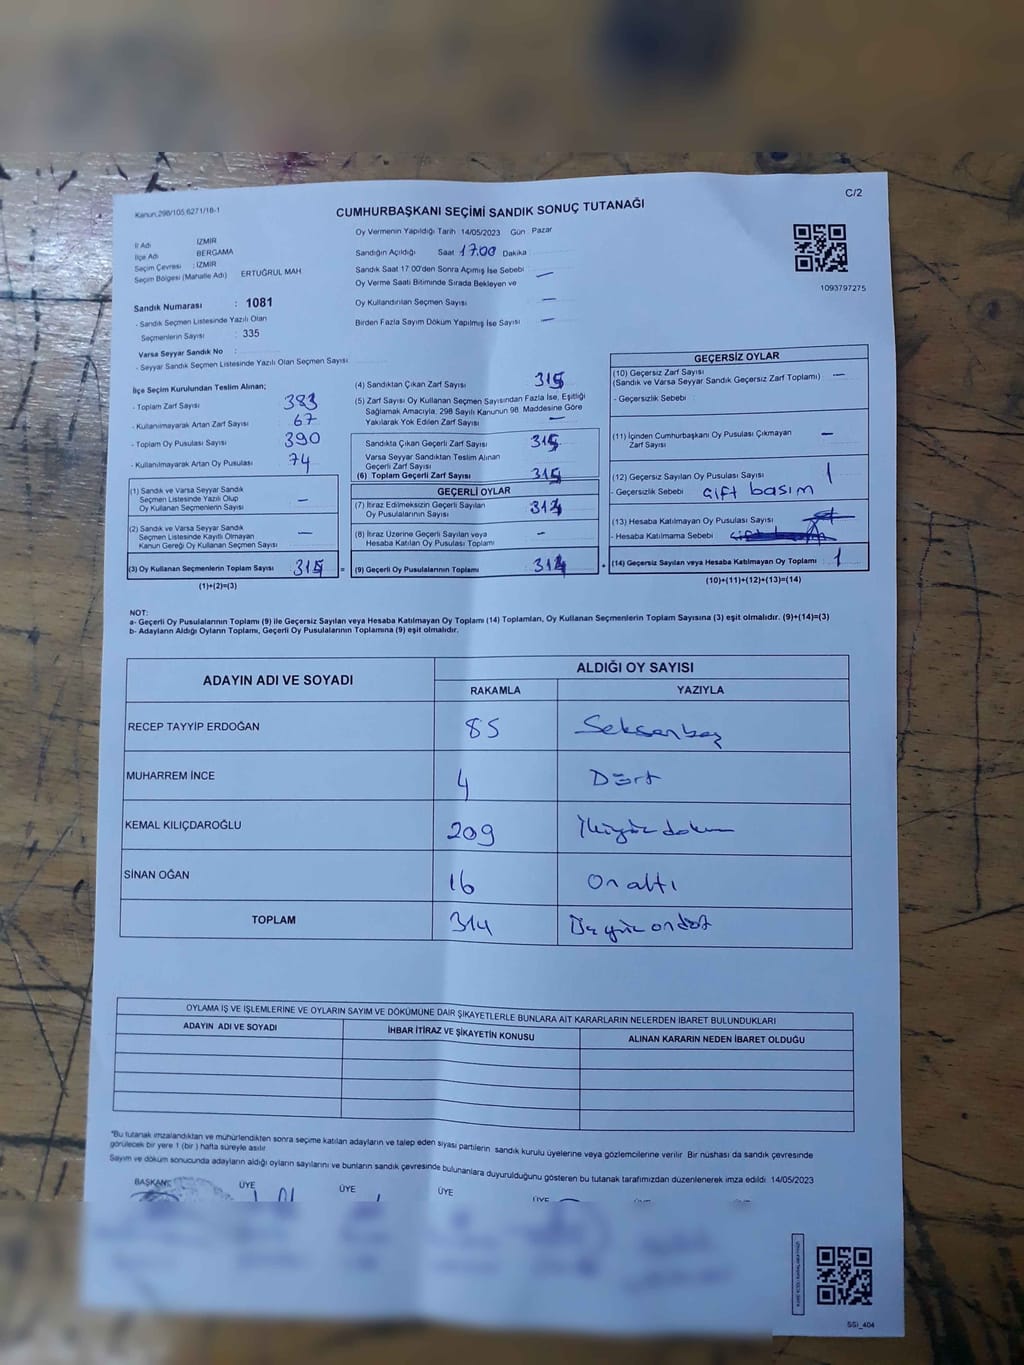 C/2
Kanun,298/105,6271/18-1
CUMHURBAŞKANI SEÇİMİ SANDIK SONUÇ TUTANAĞI
İl Adı İZMİR
İlçe Adı BERGAMA
Seçim Çevresi : İZMİR
Seçim Bölgesi (Mahalle Adı) ERTUĞRUL MAH.
Sandık Numarası : 1081
- Sandık Seçmen Listesinde Yazılı Olan
Seçmenlerin Sayısı : 335
Varsa Seyyar Sandık No :
- Seyyar Sandık Seçmen Listesinde Yazılı Olan Seçmen Sayısı
Oy Vermenin Yapıldığı Tarih 14/05/2023 Gün : Pazar
Sandığın Açıldığı Saat 17.00 Dakika
Sandık Saat 17.00'den Sonra Açımış İse Sebebi —
Oy Verme Saati Bitiminde Sırada Bekleyen ve
Oy Kullandırılan Seçmen Sayısı —
Birden Fazla Sayım Döküm Yapılmış İse Sayısı —
1093797275
İlçe Seçim Kurulundan Teslim Alınan;
- Toplam Zarf Sayısı 383
- Kullanılmayarak Artan Zarf Sayısı 67
- Toplam Oy Pusulası Sayısı 390
- Kullanılmayarak Artan Oy Pusulası 74
(1) Sandık ve Varsa Seyyar Sandık
Seçmen Listesinde Yazılı Olup
Oy Kullanan Seçmenlerin Sayısı —
(2) Sandık ve Varsa Seyyar Sandık
Seçmen Listesinde Kayıtlı Olmayan
Kanun Gereği Oy Kullanan Seçmen Sayısı —
(3) Oy Kullanan Seçmenlerin Toplam Sayısı 315 =
(1)+(2)=(3)
(4) Sandıktan Çıkan Zarf Sayısı 315
(5) Zarf Sayısı Oy Kullanan Seçmen Sayısından Fazla İse, Eşitliği
Sağlamak Amacıyla, 298 Sayılı Kanunun 98. Maddesine Göre
Yakılarak Yok Edilen Zarf Sayısı —
Sandıkta Çıkan Geçerli Zarf Sayısı 315
Varsa Seyyar Sandıktan Teslim Alınan
Geçerli Zarf Sayısı
(6) Toplam Geçerli Zarf Sayısı 315
GEÇERLİ OYLAR
(7) İtiraz Edilmeksizin Geçerli Sayılan
Oy Pusulalarının Sayısı 314
(8) İtiraz Üzerine Geçerli Sayılan veya
Hesaba Katılan Oy Pusulası Toplamı —
(9) Geçerli Oy Pusulalarının Toplamı 314 +
GEÇERSİZ OYLAR
(10) Geçersiz Zarf Sayısı
(Sandık ve Varsa Seyyar Sandık Geçersiz Zarf Toplamı) —
- Geçersizlik Sebebi
(11) İçinden Cumhurbaşkanı Oy Pusulası Çıkmayan
Zarf Sayısı —
(12) Geçersiz Sayılan Oy Pusulası Sayısı 1
- Geçersizlik Sebebi çift basım
(13) Hesaba Katılmayan Oy Pusulası Sayısı
- Hesaba Katılmama Sebebi
(14) Geçersiz Sayılan veya Hesaba Katılmayan Oy Toplamı 1
(10)+(11)+(12)+(13)=(14)
NOT:
a- Geçerli Oy Pusulalarının Toplamı (9) ile Geçersiz Sayılan veya Hesaba Katılmayan Oy Toplamı (14) Toplamları, Oy Kullanan Seçmenlerin Toplam Sayısına (3) eşit olmalıdır. (9)+(14)=(3)
b- Adayların Aldığı Oyların Toplamı, Geçerli Oy Pusulalarının Toplamına (9) eşit olmalıdır.
ADAYIN ADI VE SOYADI ALDIĞI OY SAYISI
RAKAMLA YAZIYLA
RECEP TAYYİP ERDOĞAN 85 Seksenbeş
MUHARREM İNCE 4 Dört
KEMAL KILIÇDAROĞLU 209 İkiyüz dokuz
SİNAN OĞAN 16 On altı
TOPLAM 314 Üç yüz ondört
OYLAMA İŞ VE İŞLEMLERİNE VE OYLARIN SAYIM VE DÖKÜMÜNE DAİR ŞİKAYETLERLE BUNLARA AİT KARARLARIN NELERDEN İBARET BULUNDUKLARI
ADAYIN ADI VE SOYADI İHBAR İTİRAZ VE ŞİKAYETİN KONUSU ALINAN KARARIN NEDEN İBARET OLDUĞU
*Bu tutanak imzalandıktan ve mühürlendikten sonra seçime katılan adayların ve talep eden siyasi partilerin sandık kurulu üyelerine veya gözlemcilerine verilir. Bir nüshası da sandık çevresinde
görülecek bir yere 1 (bir ) hafta süreyle asılır.
Sayım ve döküm sonucunda adayların aldığı oyların sayılarını ve bunların sandık çevresinde bulunanlara duyurulduğunu gösteren bu tutanak tarafımızdan düzenlenerek imza edildi. 14/05/2023
BAŞKAN ÜYE ÜYE ÜYE ÜYE
SSI_404